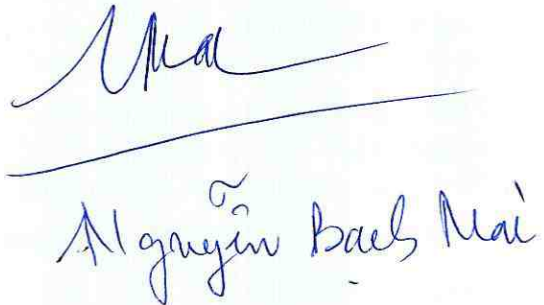 Mai
Nguyễn Bạch Mai